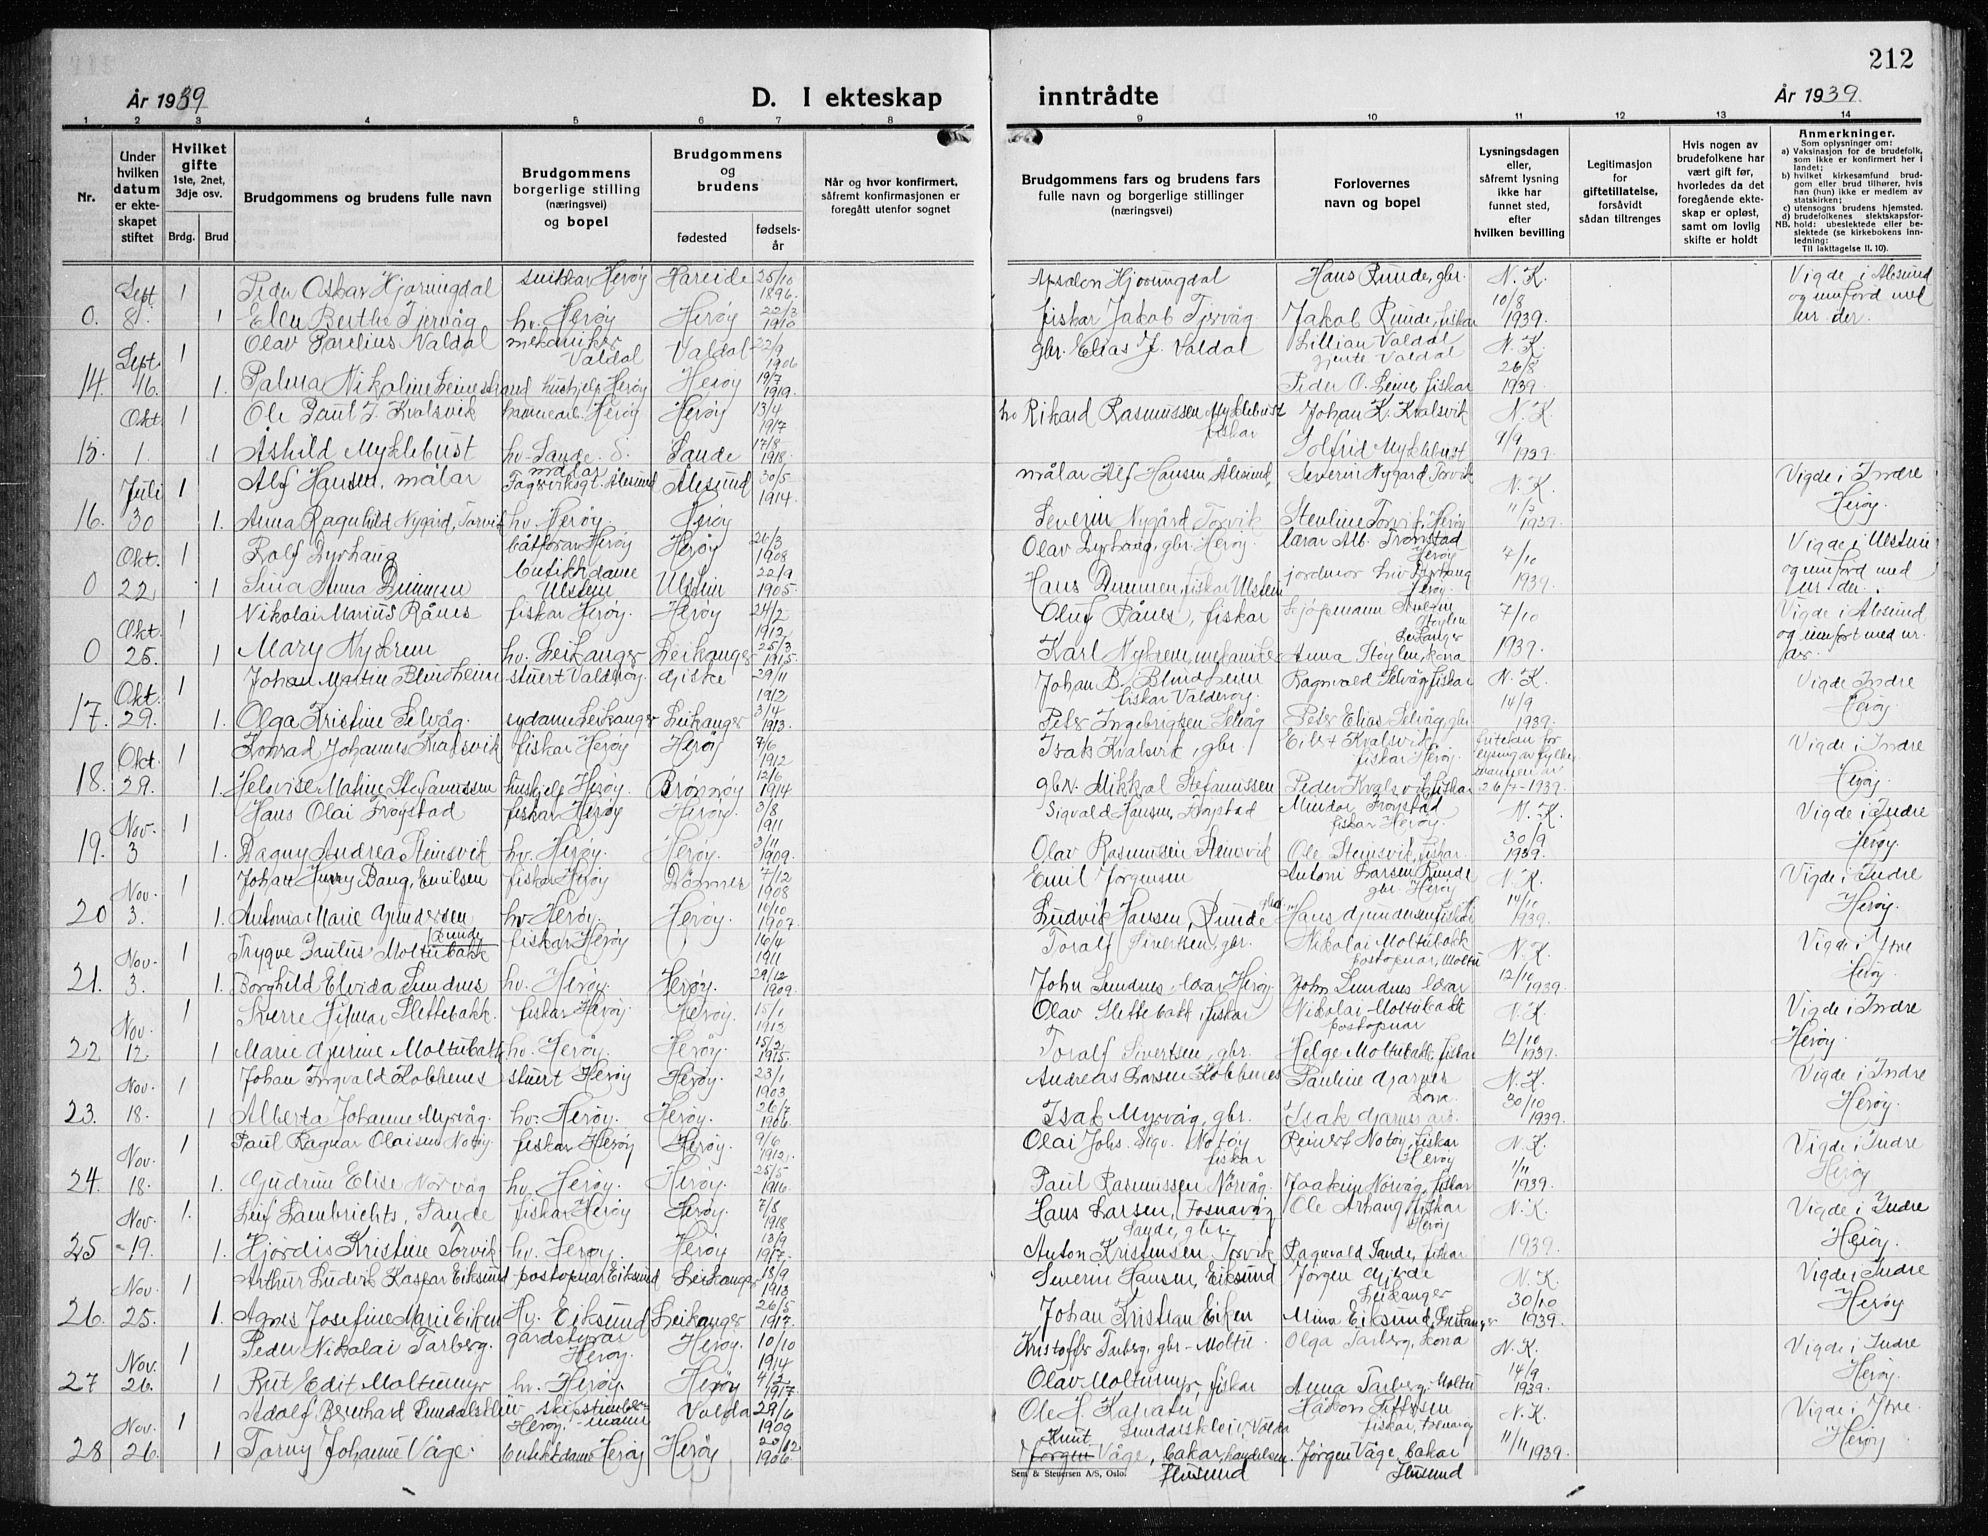 212
År 1939
D. I ekteskap
inntrådte
År 1939.
1 2 3 4 5 6 7 8
9 10 11 12 13 14
Nr.
Under hvilken datum er ekteskapet stiftet
Hvilket gifte
1ste, 2net, 3dje osv.
Brdg. Brud
Brudgommens og brudens fulle navn
Brudgommens borgerlige stilling (næringsvei) og bopel
Brudgommens og brudens
fødested
fødselsår
Når og hvor konfirmert, såfremt konfirmasjonen er foregått utenfor sognet
Brudgommens fars og brudens fars fulle navn og borgerlige stillinger (næringsvei)
Forlovernes navn og bopel
Lysningsdagen eller, såfremt lysning ikke har funnet sted, efter hvilken bevilling
Legitimasjon for giftetillatelse, forsåvidt sådan tiltrenges
Hvis nogen av brudefolkene har vært gift før, hvorledes da det foregående ekteskap er opløst, samt om lovlig skifte er holdt
Anmerkninger.
Som oplysninger om:
a) Vaksinasjon for de brudefolk, som ikke er konfirmert her i landet;
b) hvilket kirkesamfund brudgom eller brud tilhører, hvis han (hun) ikke er medlem av statskirken;
c) utensogns brudens hjemsted.
d) brudefolkenes slektskapsforhold: ubeslektede eller beslektede (se kirkebokens innledning:
NB.
Til Iakttagelse II. 10).
Sept 1 Peder Oskar Hjørungdal snikkar Herøy Hareide 25/10 1896. Hjørungdal Hans Runde, gbr. N. K. Vigde i Ålesund
0. 8. 1 Elen Berthe Tjervåg hv. Herøy Herøy 22/3 1910 fiskar Jakob Tjervåg Jakob Runde, fiskar 10/8 1939. og innførd med
Sept. 1 Olav Valdal mekaniker Valdal Valdal 22/9 1906 gbr. Elias J. Valdal Lillian Valdal gjente Valdal N. K.
14 1. Palma Nikoline Leinestrand hushjelp Herøy Herøy 19/7 1919. Peder O. Leine fiskar 26/8 1939
Okt 1 Ole Paul J. Kvalsvik Herøy Herøy 13/4 1917 Rikard Rasmussen Myklebust fiskar Johan K. Kvalsvik N. K.
15. 1. 1 Åshild Myklebust hv. Sande Sande 17/8 1918. Solfrid Myklebust 9/9 1939
Juli 1 Alf Hansen, målar målar Ålesund Ålesund 30/5 1914 målar Alf Hansen Ålesund, Severin Nygård Torvik N. K. Vigde i Indre
16. 30 1. Anna Ragnhild Nygård, Torvik hv. Herøy Herøy Severin Nygård Torvik Torvik, Herøy 11/7 1939. Herøy.
Okt. 1 Rolf Dyrhaug båtførar Herøy Herøy 26/3 1908 Olav Dyrhaug, gbr. Herøy. lærar Alb. Tronstad Herøy 4/10 Vigde i Ulstein
0 22 1 Anna Dimmen butikkdame Ulstein Ulstein 22/9 1905. Hans Dimmen, fiskar Ulstein jordmor Liv Dyrhaug Herøy. 1939. og innførd med
Okt. 1 Nikolai Marius Rånes fiskar Herøy. Herøy 24/2 1912. Oluf Rånes, fiskar Støylen Leikanger 7/10 Vigde i Ålesund
0 25. 1 Mary Nykrem hv. Leikanger Leikanger 25/3 1915. Karl Nykrem, mekaniker Anna Støylen, kona 1939. og innført med
Okt. 1 Johan Martin Blindheim stuert Valderøy. Giske 29/11 1912 Johan B. Blindheim fiskar Valderøy. Ragnvald Selvåg, fiskar N. K. Vigde Indre
17. 29. 1. Olga Kristine Selvåg. sydame Leikanger Leikanger 3/4 1913. Peter Ingebrigtsen Selvåg Peter Elias Selvåg, gbr. 14/9 1939. Herøy.
Okt. 1 Konrad Johannes Kvalsvik fiskar Herøy Herøy 7/6 1912 Isak Kvalsvik, gbr. Eilert Kvalsvik, fiskar Herøy. Vigde i Indre
18. 29. 1. Stefanussen hushjelp Herøy. Brønnøy 12/6 1914 gbr. Mikkal Stefanussen Peder Kvalsvik fiskar 1939. Herøy.
Nov. 1 Hans Olai Frøystad fiskar Herøy Herøy. 3/8 1911 Sigvald Hansen, Frøystad Mindor Frøystad fiskar Herøy. N. K. Vigde i Indre
19. 3 1. Dagny Andrea Stemsvik hv. Herøy. Herøy. 3/11 1909. Olav Rasmussen Stemsvik Ole Stemsvik, fiskar. 30/9 1939. Herøy.
Nov. 1 Johan Harry Bang, Emilsen fiskar Herøy Dønnes 7/12 1908 Emil Jørgensen Antoni Larsen Runde gbr. Herøy N. K. Vigde i Indre
20 3. 1. Antonia Marie Gjundersen hv. Herøy. Herøy. 10/10 1907. Ludvik Hansen, Runde Hans Gjundersen fiskar 14/10 1939. Herøy.
Nov. 1 Trygve Paulus Moltubakk fiskar Herøy 16/4 1911 Toralf Sivertsen, gbr. Nikolai Moltubakk postopnar, Moltu N. K. Vigde i Ytre
21. 3. 1. Borghild Elvida Sundnes hv. Herøy. Herøy. 29/12 1909. John Sundnes, lærar Herøy John Sundnes lærar 12/10 1939. Herøy.
Nov. 1 Sverre Hilmar Slettebakk. fiskar Herøy. Herøy. 1913 Olav Slettebakk, fiskar Nikolai Moltubakk postopnar N. K. Vigde i Indre
22 12 1 Marie Gjurine Moltubakk hv. Herøy. Herøy. 15/2 1915. Toralf Sivertsen, gbr. Helge Moltubakk, fiskar 12/10 1939. Herøy.
Nov. 1 Johan Ingvald Kobbenes stuert Herøy Herøy. 23/1 1903 Andreas Larsen Kobbenes Pauline Gjarnes kona. N. K. Vigde i Indre
23. 18. 1 Alberta Johanne Myrvåg. hv. Herøy. Herøy. 26/7 1906. Isak Myrvåg, gbr. Isak Gjarnes arb. 30/10 1939. Herøy.
Nov. 1 Paul Ragnar Olaisen Notøy. fiskar Herøy Herøy. 9/6 1912. Olai Johs. Sigv. Notøy fiskar Reinert Notøy, fiskar Herøy N. K. Vigde i Indre
24. 18. 1. Gudrun Elise Nørvåg hv. Herøy. Herøy. 25/5 1916. Paul Rasmussen Nørvåg. Joakim Nørvåg, fiskar 1/11 1939. Herøy
Nov. 1. Leif Lambrichts, Sande fiskar Herøy Herøy. 7/8 1918 Hans Larsen, Fosnavåg Sande, gbr. Ole Arhaug, fiskar Herøy N. K. Vigde i Indre
25 19. 1. Hjørdis Kristine Torvik hv. Herøy. Herøy 13/9 1917. Anton Kristensen Torvik Ragnvald Sande, fiskar 1939. Herøy.
Nov. 1 Arthur Ludvik Kaspar Eiksund postopnar Eiksund Leikanger 18/9 1913 Severin Hansen, Eiksund Jørgen Gjerde Leikanger N. K. Vigde i Indre
26. 25. 1. Agnes Josefine Marie Eiken Hv. Eiksund Leikanger 26/5 1917. Johan Kristian Eiken Mina Eiksund, Leikanger 30/10 1939. Herøy.
Nov. 1 Peder Nikolai Tarberg. gardstyrar Herøy. Herøy. 10/10 1914 Kristoffer Tarberg, gbr - Moltu Olga Tarberg, kona N. K. Vigde i Indre
27 26. 1 Rut Edit Moltumyr hv. Herøy. Herøy 4/2 1917. Olav Moltumyr, fiskar Anna Tarberg. Moltu 14/9 1939. Herøy.
Nov. 1 Adolf Bernhard Herøy. Volda 29/6 1909 Ole H. Volda Håkon fiskar, Fosnavåg N. K. Vigde i Ytre
28 26. 1 Torny Johanne Våge. butikkdame Herøy Herøy 20/12 1906. Knut Jørgen Våge, bakar, Flusund Jørgen Våge, bakar Flusund 11/11 1939. Herøy
Sem & Stenersen A/S, Oslo.